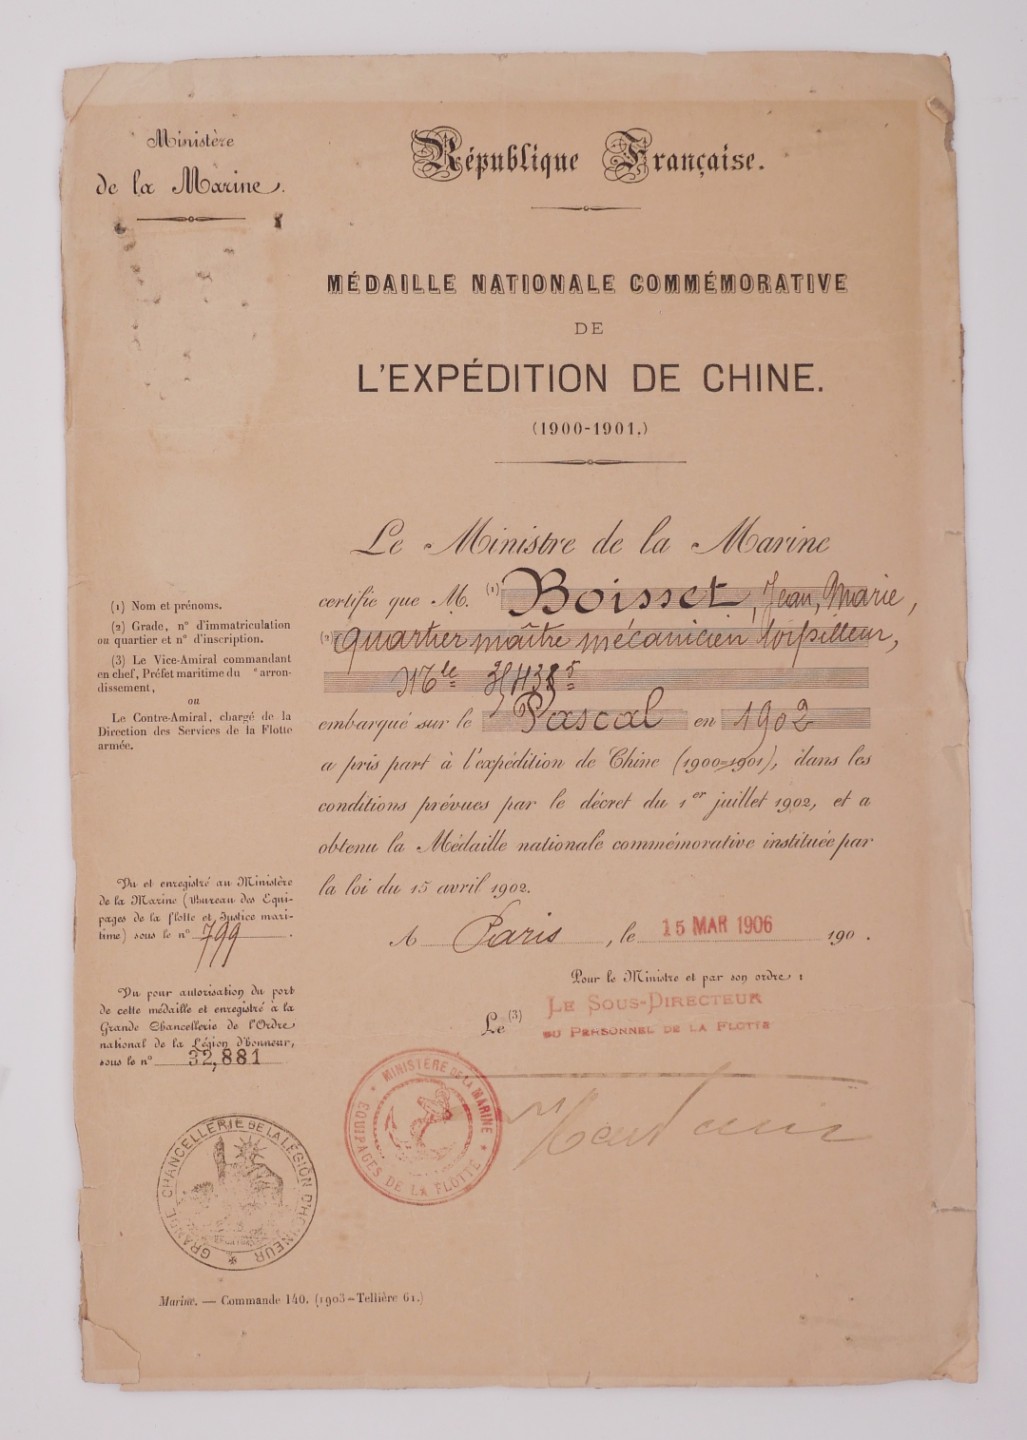 Ministère
de la Marine.
République Française.
MÉDAILLE NATIONALE COMMÉMORATIVE
DE
L'EXPÉDITION DE CHINE.
(1900-1901.)
Le Ministre de la Marine
certifie que M. (1) Boisset, Jean, Marie,
(2) Quartier maître mécanicien torpilleur,
Mle
embarqué sur le Pascal en 1902
a pris part à l'expédition de Chine (1900-1901), dans les
conditions prévues par le décret du 1er juillet 1902, et a
obtenu la Médaille nationale commémorative instituée par
la loi du 15 avril 1902.
A Paris, le 15 MAR 1906 190 .
Pour le Ministre et par son ordre :
Le (3) LE SOUS-DIRECTEUR
DU PERSONNEL DE LA FLOTTE
(1) Nom et prénoms.
(2) Grade, n° d'immatriculation
ou quartier et n° d'inscription.
(3) Le Vice-Amiral commandant
en chef, Préfet maritime du e arron-
dissement,
ou
Le Contre-Amiral, chargé de la
Direction des Services de la Flotte
armée.
Vu et enregistré au Ministère
de la Marine (Bureau des Equi-
pages de la flotte et Justice mari-
time) sous le n° 799.
Vu pour autorisation du port
de cette médaille et enregistré à la
Grande Chancellerie de l'Ordre
national de la Légion d'honneur,
sous le n° 32,881
MINISTÈRE DE LA MARINE
EQUIPAGES DE LA FLOTTE
GRANDE CHANCELLERIE DE LA LÉGION D'HONNEUR
Marine. — Commande 140. (1903-Tellière 61.)